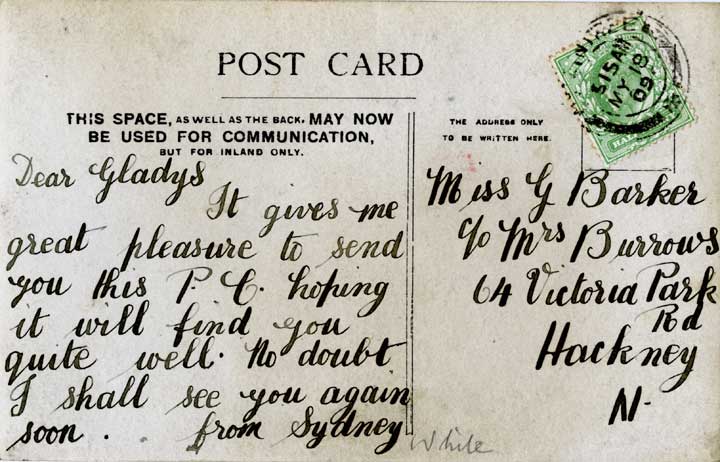 POST CARD
THIS SPACE, AS WELL AS THE BACK, MAY NOW
BE USED FOR COMMUNICATION,
BUT FOR INLAND ONLY.
Dear Gladys
It gives me
great pleasure to send
you this P. C. hoping
it will find you
quite well. No doubt
I shall see you again
soon. from Sydney
White
THE ADDRESS ONLY
TO BE WRITTEN HERE.
Miss G Barker
c/o Mrs Burrows
64 Victoria Park
Rd
Hackney
N-
5 15AM
MY 18
09